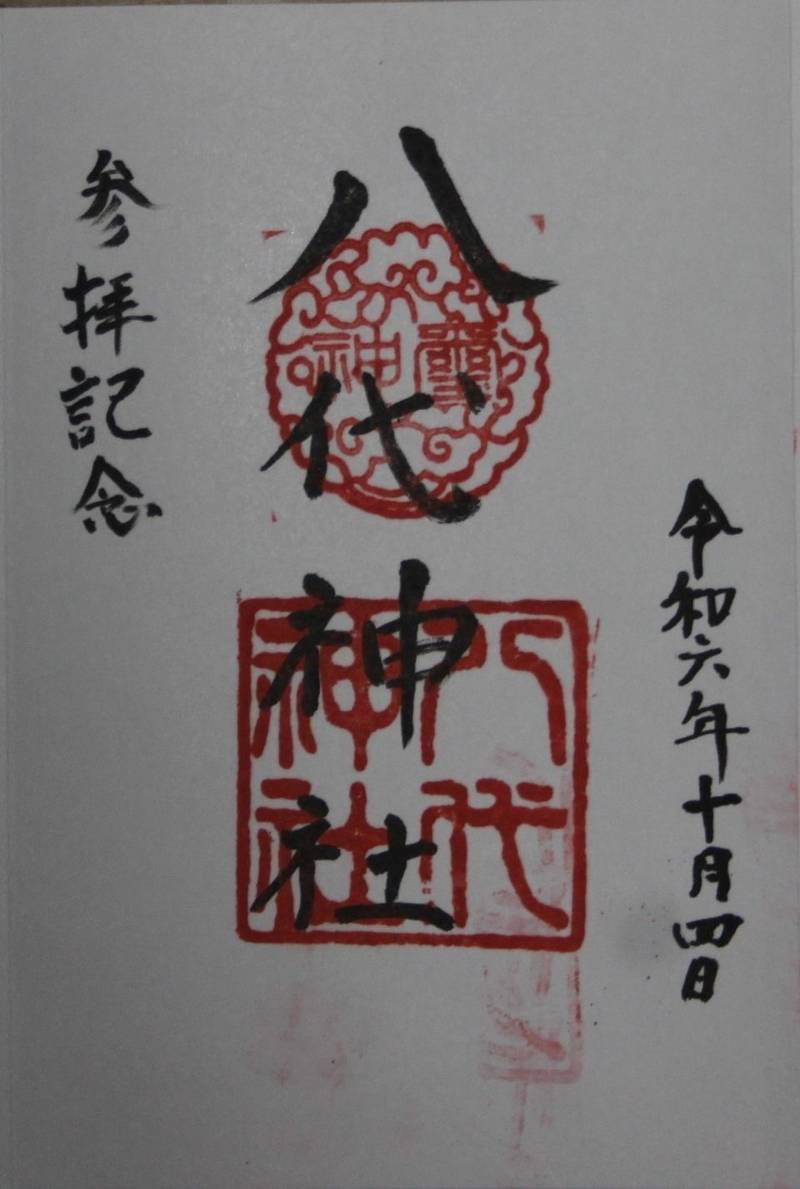 令和六年十月四日
八代神社
八代神社
参拝記念